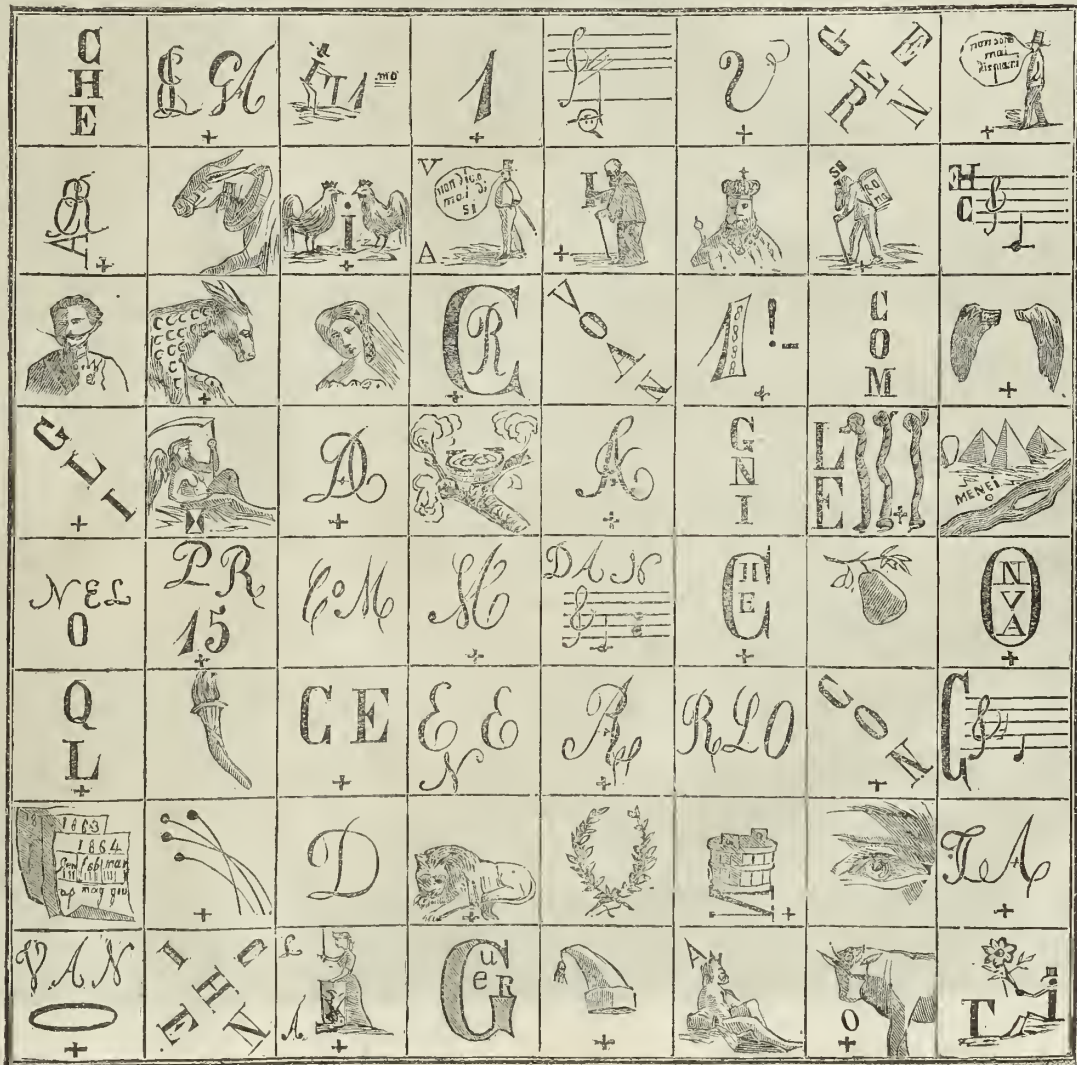 C
H
E
L GA
T 1 mo
1
V
GEREN
non sono mai
C
H
V
non dico mai di SI
A
I
i
SI
ROMA
C C C C
C
R
VOAN
1
8
8
9
!-
C
O
M
GLI
D
A
G
N
I
L
E
MENEI
O
NEL
O
PR
15
COM
M
DAN
C
HE
O
N
V
A
Q
L
CE
E E
N
A
RLO
CON
C
1863
1864
Gen feb mar
ap mag giu
D
TA
VAN
L
A
G
u
e
R
A
O
T
i